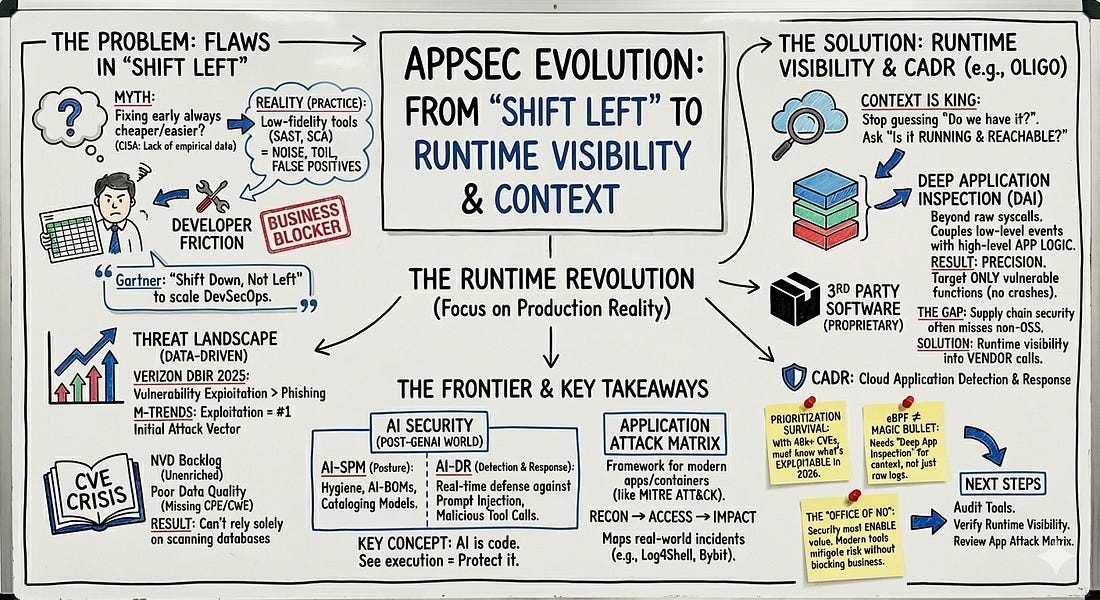 THE PROBLEM: FLAWS
IN “SHIFT LEFT”
MYTH:
Fixing early always
cheaper/easier?
(CISA: Lack of empirical data)
?
REALITY (PRACTICE):
Low-fidelity tools
(SAST, SCA)
= NOISE, TOIL,
FALSE POSITIVES
DEVELOPER
FRICTION
BUSINESS
BLOCKER
“Gartner: “Shift Down, Not Left”
to scale DevSecOps.”
THREAT LANDSCAPE
(DATA-DRIVEN)
VERIZON DBIR 2025:
Vulnerability Expioitation > Phishing
M-TRENDS: Exploitation = #1
Initial Attack Vector
CVE
CRISIS
NVD Backlog
(Unenriched)
Poor Data Quality
(Missing CPE/CWE)
RESULT: Can’t rely solely
on scanning databases
APPSEC EVOLUTION:
FROM “SHIFT LEFT” TO
RUNTIME VISIBILITY
& CONTEXT
THE RUNTIME REVOLUTION
(Focus on Production Reality)
THE FRONTIER & KEY TAKEAWAYS
AI SECURITY
(POST-GENAI WORLD)
AI-SPM (Posture):
Hygiene, AI-BOMs,
Cataloging Models.
AI-DR (Detection & Response):
Real-time defense against
Prompt Injection,
Malicious Tool Calls.
KEY CONCEPT: AI is code.
See execution = Protect it.
APPLICATION
ATTACK MATRIX
Framework for modern
apps/containers
(like MITRE ATT&CK).
RECON → ACCESS → IMPACT
Maps real-world incidents
(e.g., Log4Shell, Bybit).
THE SOLUTION: RUNTIME
VISIBILITY & CADR (e.g., OLIGO)
CONTEXT IS KING:
Stop guessing “Do we have it?”.
Ask “Is it RUNNING & REACHABLE?”
DEEP APPLICATION
INSPECTION (DAI)
Beyond raw syscalls.
Couples low-level events
with high-level APP LOGIC.
RESULT: PRECISION.
Target ONLY vulnerable
functions (no crashes).
3RD PARTY
SOFTWARE
(PROPRIETARY)
THE GAP: Supply chain security
often misses non-OSS.
SOLUTION: Runtime visibility
into VENDOR calls.
CADR: Cloud Application Detection & Response
PRIORITIZATION
SURVIVAL:
With 48k+ CVEs,
must know what’s
EXPLOITABLE in
2026.
eBPF ≠
MAGIC BULLET:
Needs “Deep App
Inspection” for
context, not just
raw logs.
THE “OFFICE OF NO”:
Security most ENABLE
value. Modern tools
mitigole risk without
blocking business.
NEXT STEPS
Audit Tools.
Verify Runtime Visibility.
Review App Attack Matrix.